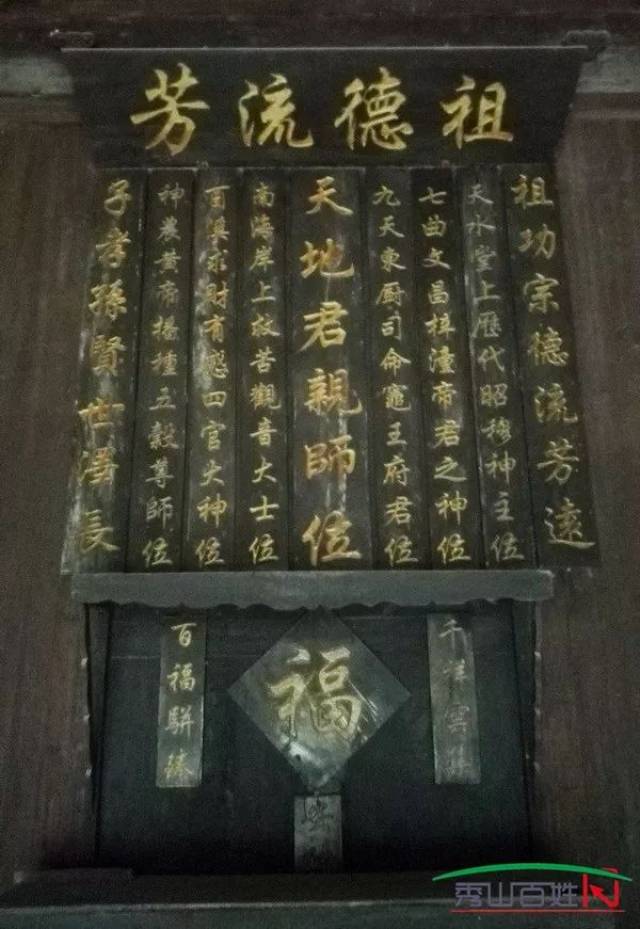 祖德流芳
祖功宗德流芳遠
天水堂上歷代昭穆神主位
七曲文昌梓潼帝君之神位
九天東厨司命竈王府君位
天地君親師位
南海岸上救苦觀音大士位
百求財有感四官大神位
神農黄帝播種五穀尊師位
子孝孫賢世澤長
千祥雲集
福
百福駢臻
秀山百姓网